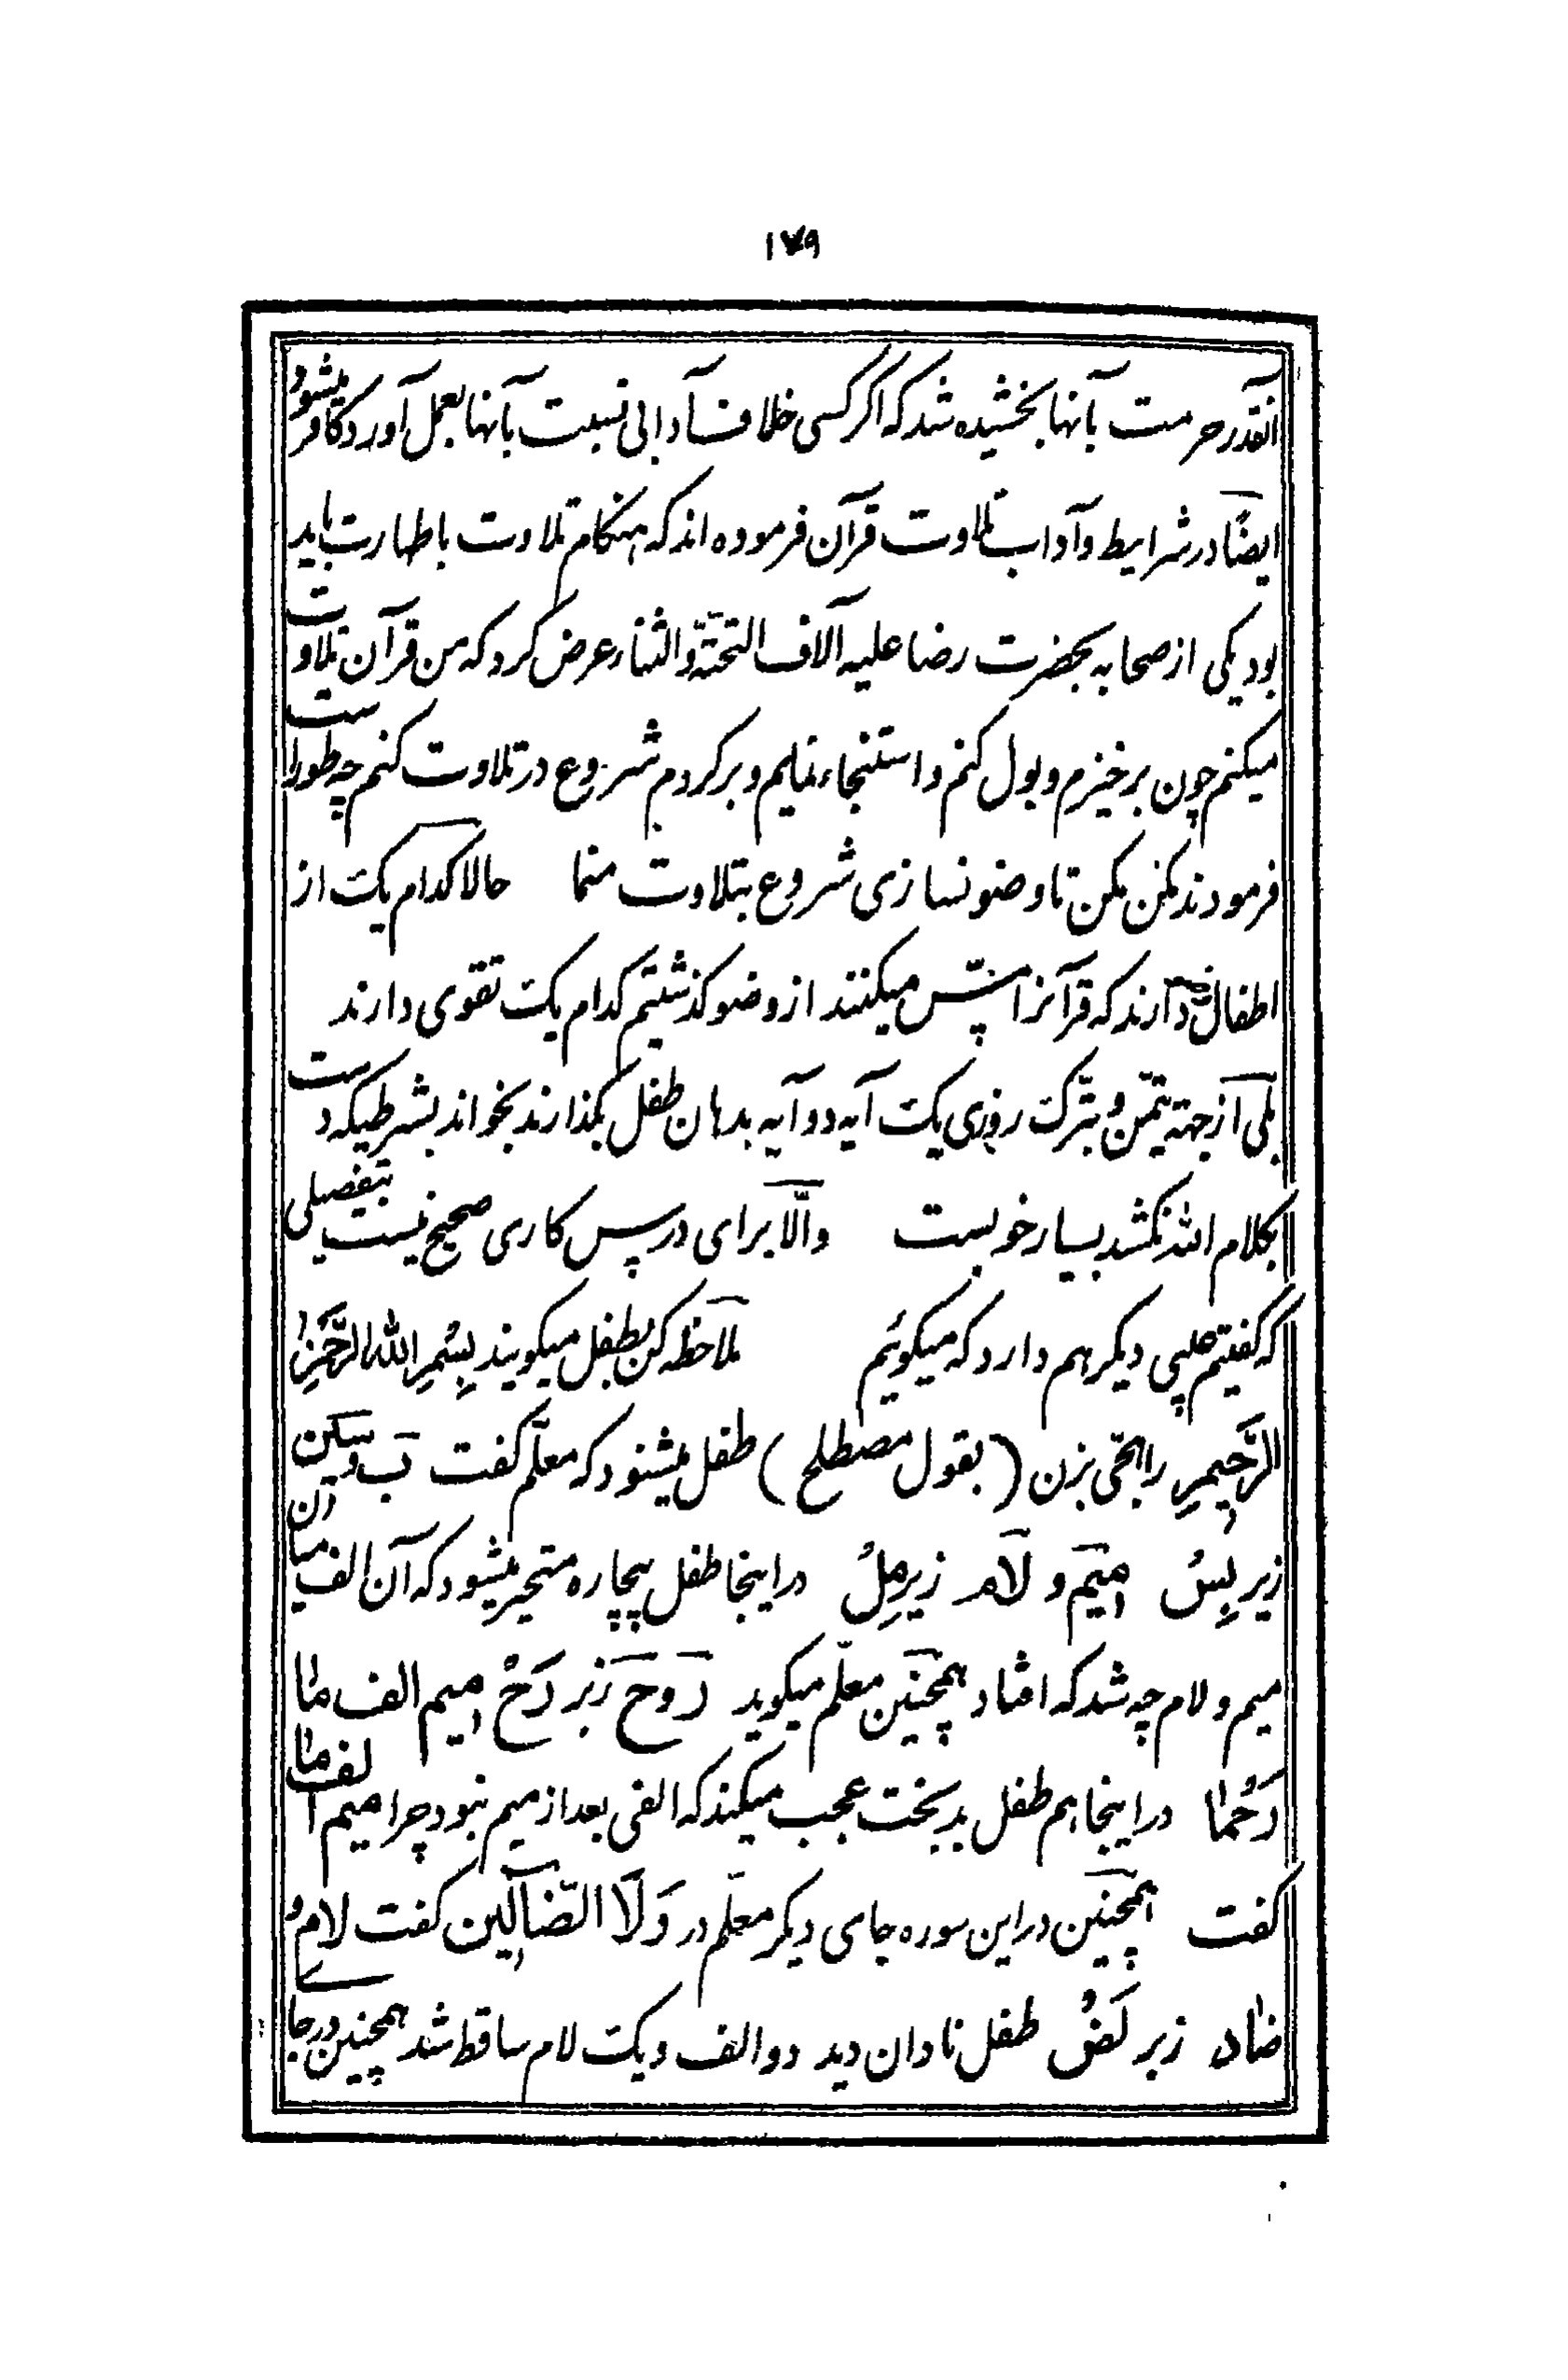 ۱۷۹
آنقدر حرمت بآنها بخشیده شد که اگر کسی خلاف آدابی نسبت بآنها بعمل آورد کافر میشود
ایضًا در شرایط و آداب تلاوت قرآن فرموده اند که هنکام تلاوت با طهارت باید
بود یکی از صحابه بحضرت رضا علیه آلاف التحیّة والثناء عرض کرد که من قرآن تلاوت
میکنم چون برخیزم و بول کنم و استنجاء نمایم و برکردم شروع در تلاوت کنم چه طور است
فرمودند مکن مکن تا وضو نسازی شروع بتلاوت منما حالا کدام یک از
اطفال وضو دارند که قرآنرا مسّ میکنند از وضو کذشتیم کدام یک تقوی دارند
بلی از جهة تیمّن و تبرّک روزی یک آیه دو آیه بدهان طفل بکذارند بخواند بشرطیکه دست
بکلام الله نکشد بسیار خوبست والّا برای درس کاری صحیح نیست بتفصیلی
که کفتیم عیبی دیکر هم دارد که میکوئیم ملاحظه کن بطفل میکویند بِسْمِ اللهِ الرَّحْمنِ
الرَّحِیمِ را هجّی بزن (بقول مصطلح) طفل میشنود که معلّم کفت ب و سین
زیر بِسْ میم و لام زیر مِلْ در اینجا طفل بیچاره متحیر میشود که آن الف میان آن
میم و لام چه شد که افتاد همچنین معلّم میکوید ر و ح زبر رَحْ میم الف ما
رَحْما در اینجا هم طفل بدبخت عجب میکند که الفی بعد از میم نبود چرا میم الف ما
کفت همچنین در این سوره جای دیکر معلّم در وَلَا الضّالّین کفت لام و
ضاد زبر لَضْ طفل نادان دید دو الف و یک لام ساقط شد همچنین در جای